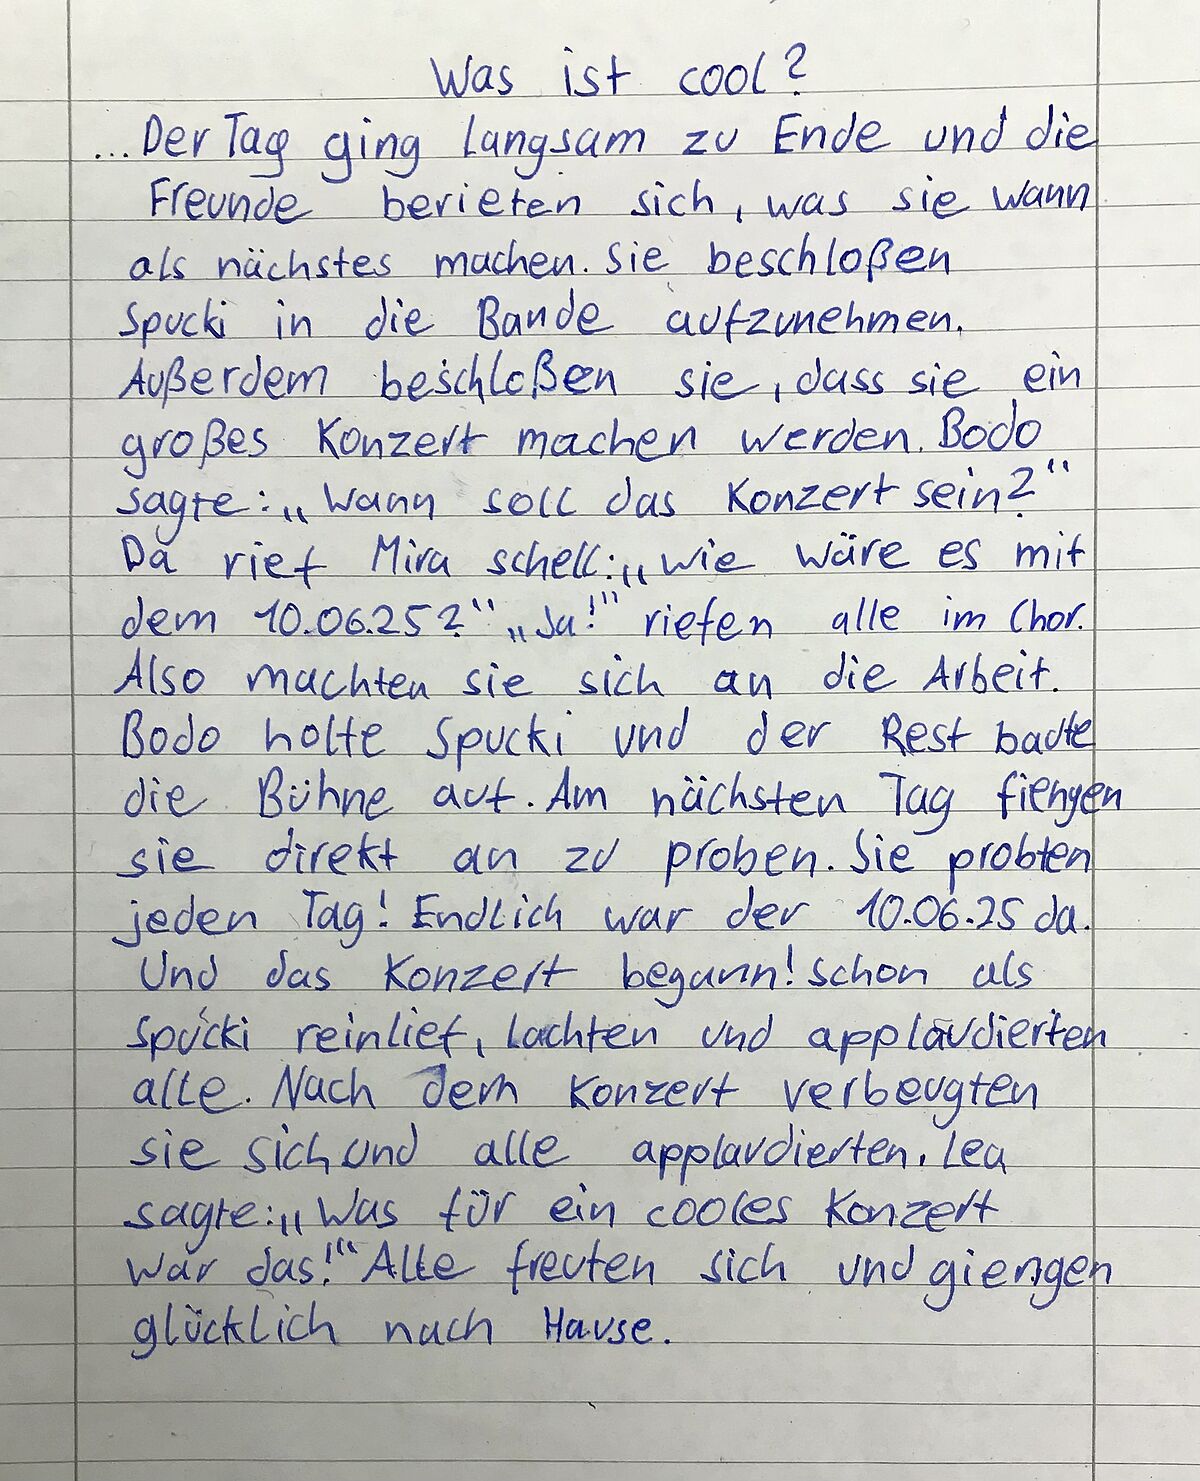 Was ist cool?
...Der Tag ging langsam zu Ende und die
Freunde berieten sich, was sie wann
als nächstes machen. Sie beschloßen
Spucki in die Bande aufzunehmen.
Außerdem beschloßen sie, dass sie ein
großes Konzert machen werden. Bodo
sagte: „Wann soll das Konzert sein?“
Da rief Mira schell: „wie wäre es mit
dem 10.06.25?“ „Ja!“ riefen alle im Chor.
Also machten sie sich an die Arbeit.
Bodo holte Spucki und der Rest baute
die Bühne auf. Am nächsten Tag fiengen
sie direkt an zu proben. Sie probten
jeden Tag! Endlich war der 10.06.25 da.
Und das Konzert begann! schon als
Spucki reinlief, lachten und applaudierten
alle. Nach dem Konzert verbeugten
sie sich und alle applaudierten. Lea
sagte: „Was für ein cooles Konzert
war das!“ Alle freuten sich und giengen
glücklich nach Hause.